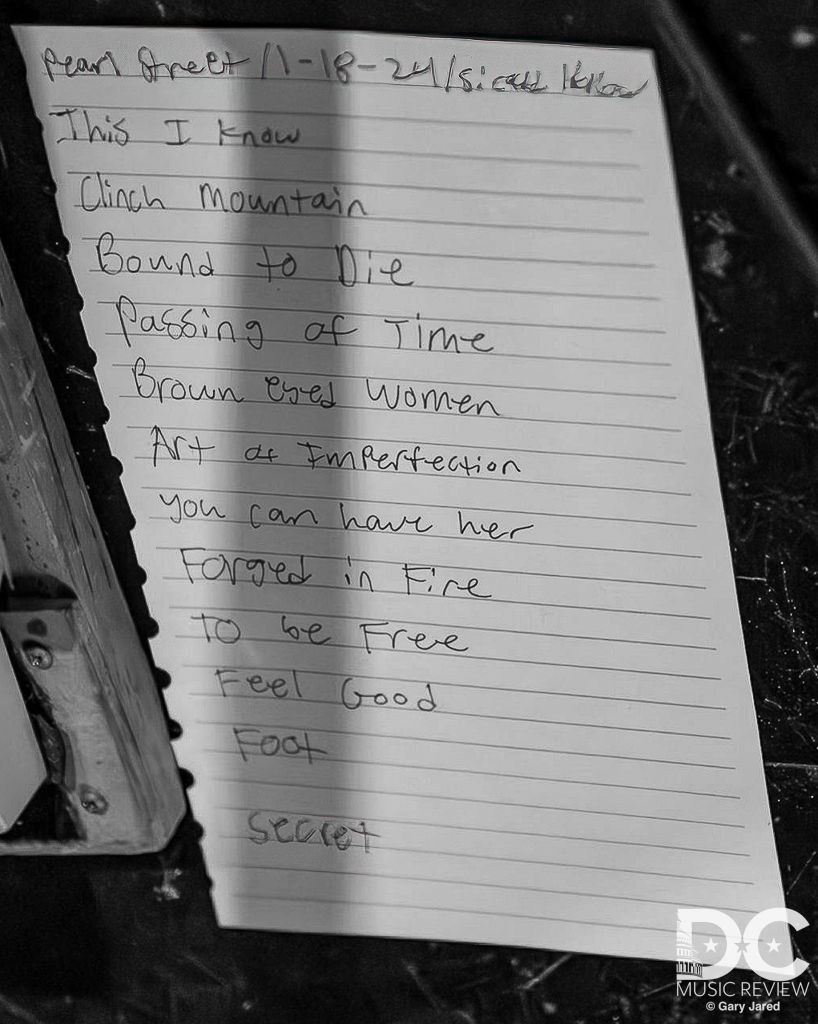 Pearl Street / 1-18-24 /
This I know
Clinch Mountain
Bound to Die
Passing of Time
Brown eyed Women
Art of Imperfection
you can have her
Forged in Fire
To be Free
Feel Good
Foot
Secret
DC
MUSIC REVIEW
© Gary Jared